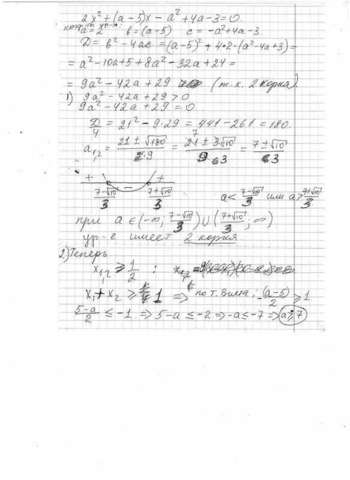 2x² + (a-5)x - a² + 4a - 3 = 0.
a = 2 b = (a-5) c = -a² + 4a - 3.
D = b² - 4ac = (a-5)² + 4·2·(a² - 4a + 3) =
= a² - 10a + 5 + 8a² - 32a + 24 =
= 9a² - 42a + 29 (т.к. 2 корня).
1) 9a² - 42a + 29 > 0
9a² - 42a + 29 = 0.
D/4 = 21² - 9·29 = 441 - 261 = 180.
a₁,₂ = (21 ± √180)/9 = (21 ± 3√10)/9 = (7 ± √10)/3
+ - +
(7-√10)/3 (7+√10)/3 a < (7-√10)/3 или a > (7+√10)/3
при a ∈ (-∞, (7-√10)/3) ∪ ((7+√10)/3, ∞)
ур-е имеет 2 корня
2) Теперь
x₁,₂ ≥ 1/2 :
x₁ + x₂ ≥ 1 => по т. Виета: -(a-5)/2 ≥ 1
(5-a)/2 ≤ -1 => 5-a ≤ -2 => -a ≤ -7 => a ≥ 7